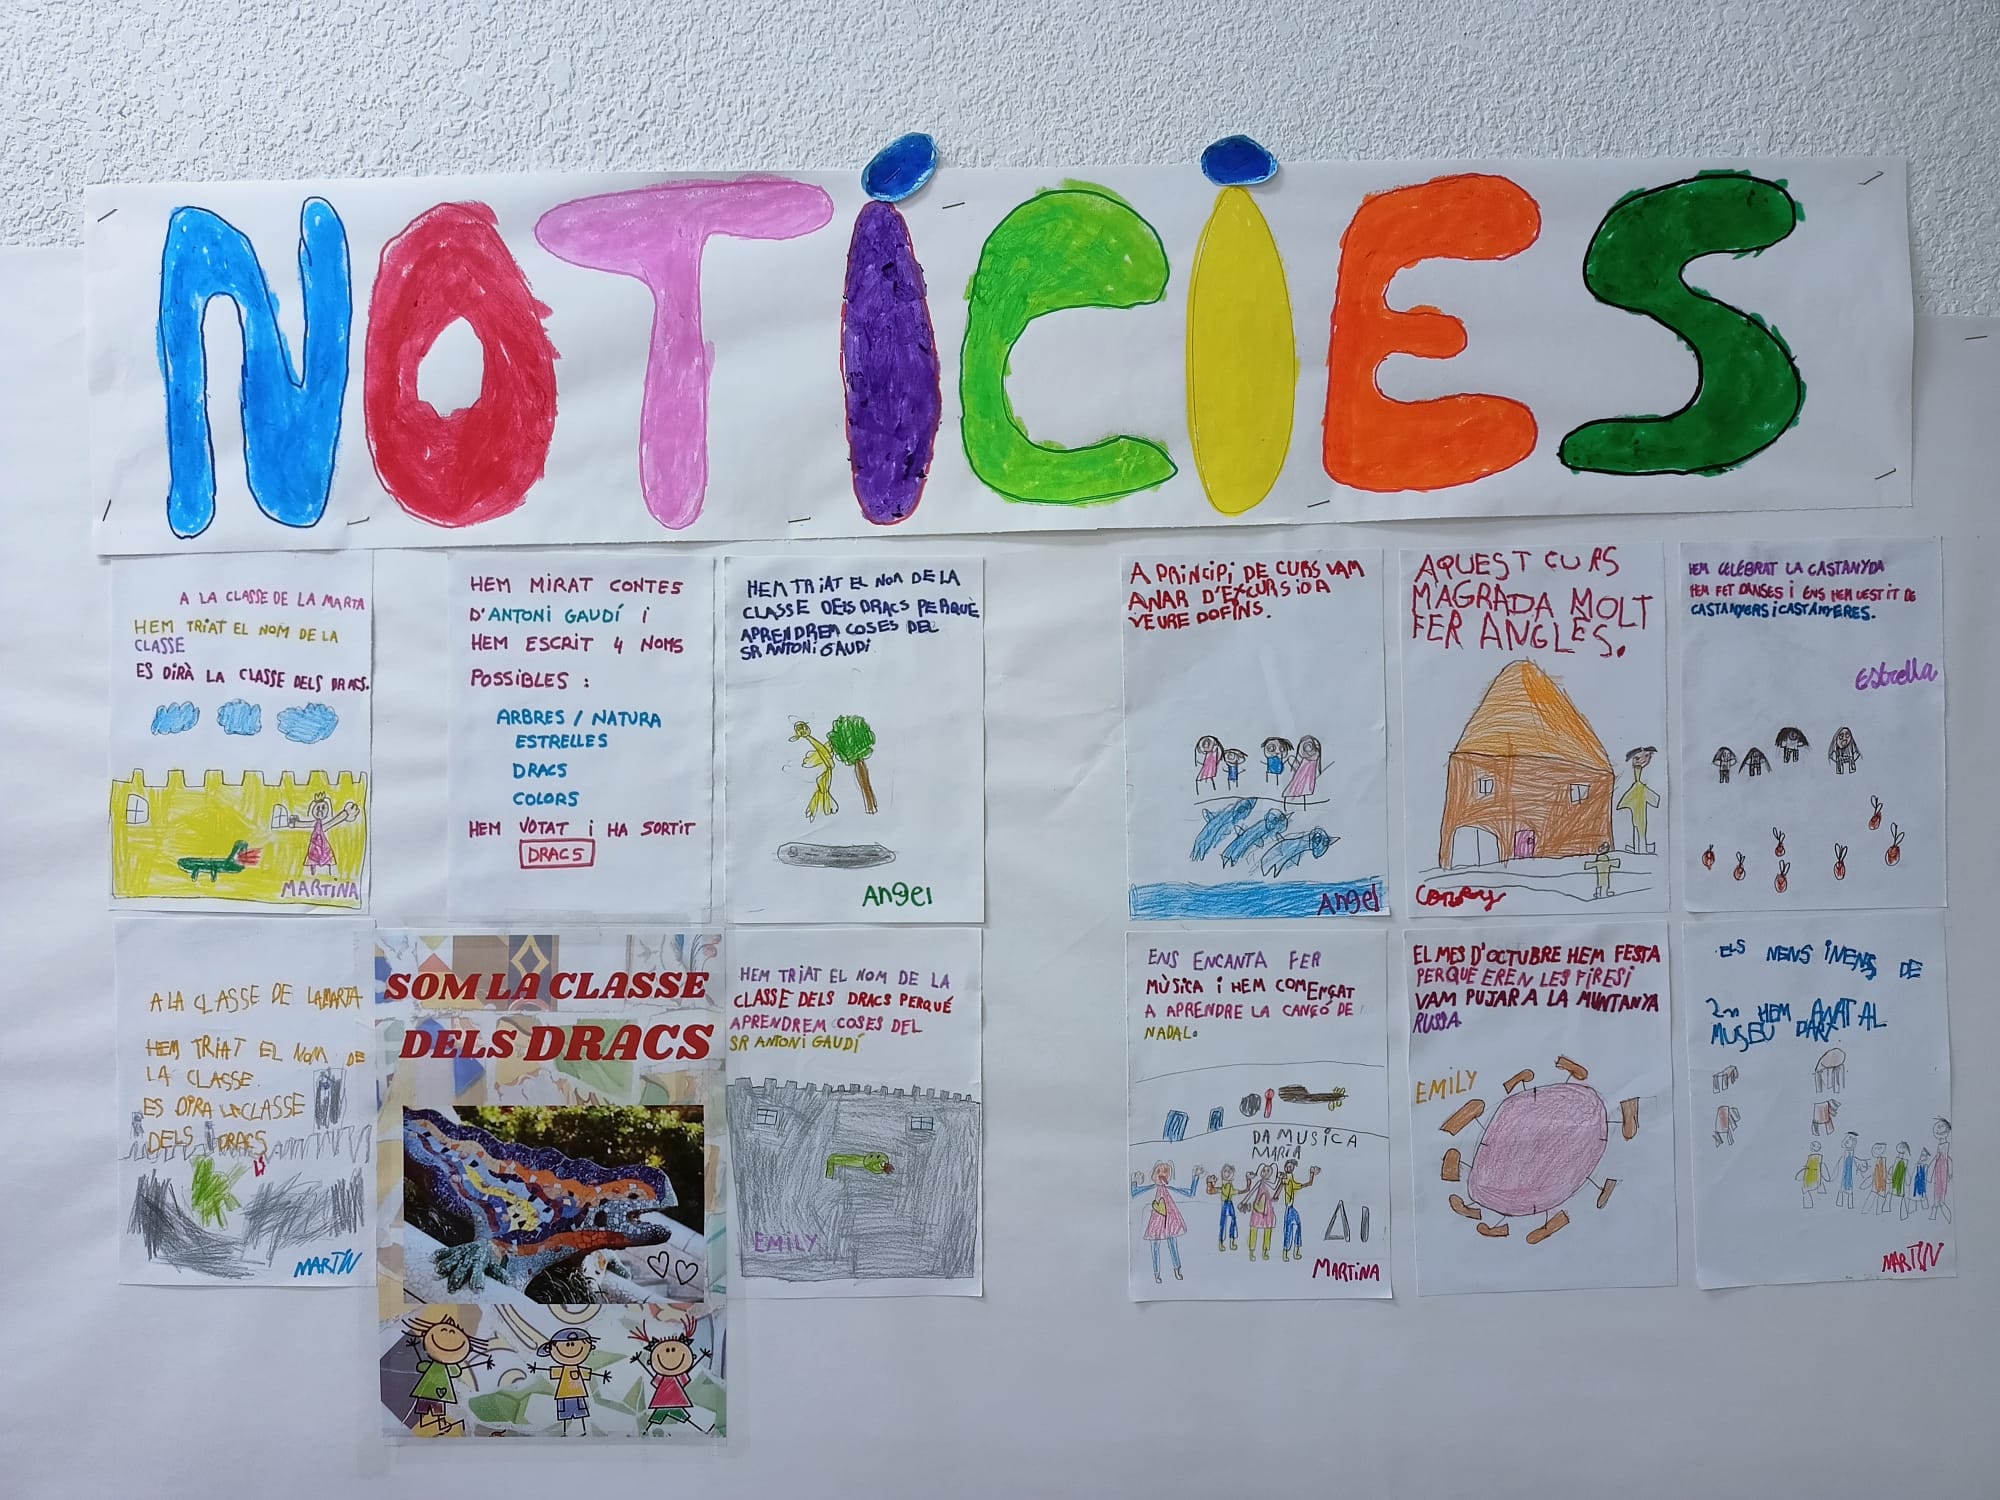 NOTICIES
A LA CLASSE DE LA MARTA
HEM TRIAT EL NOM DE LA
CLASSE
ES DIRÀ LA CLASSE DELS DRACS.
MARTINA
HEM MIRAT CONTES
D'ANTONI GAUDÍ i
HEM ESCRIT 4 NOMS
POSSIBLES :
ARBRES / NATURA
ESTRELLES
DRACS
COLORS
HEM VOTAT i HA SORTIT
DRACS
HEM TRIAT EL NOM DE LA
CLASSE DELS DRACS PERQUÈ
APRENDREM COSES DEL
SR ANTONI GAUDÍ
Angel
A PRINCIPI DE CURS VAM
ANAR D'EXCURSIÓ A
VEURE DOFINS.
Angel
AQUEST CURS
M'AGRADA MOLT
FER ANGLÈS.
HEM CELEBRAT LA CASTANYDA
HEM FET DANSES I ENS HEM VESTIT DE
CASTANYERS I CASTANYERES.
Estrella
A LA CLASSE DE LAMARTA
HEM TRIAT EL NOM DE
LA CLASSE.
ES DIRA LACLASSE
DELS DRACS
MARTIN
SOM LA CLASSE
DELS DRACS
HEM TRIAT EL NOM DE LA
CLASSE DELS DRACS PERQUÉ
APRENDREM COSES DEL
SR ANTONI GAUDÍ
EMILY
ENS ENCANTA FER
MÙSICA I HEM COMENÇAT
A APRENDRE LA CANÇÓ DE
NADAL.
DA MUSICA
MARTA
MARTINA
EL MES D'OCTUBRE HEM FESTA
PERQUE EREN LES FIRES I
VAM PUJAR A LA MUNTANYA
RUSSA
EMILY
ELS NENS I NENS DE
2n HEM ANAT AL
MUSEU D'ART
MARTIN